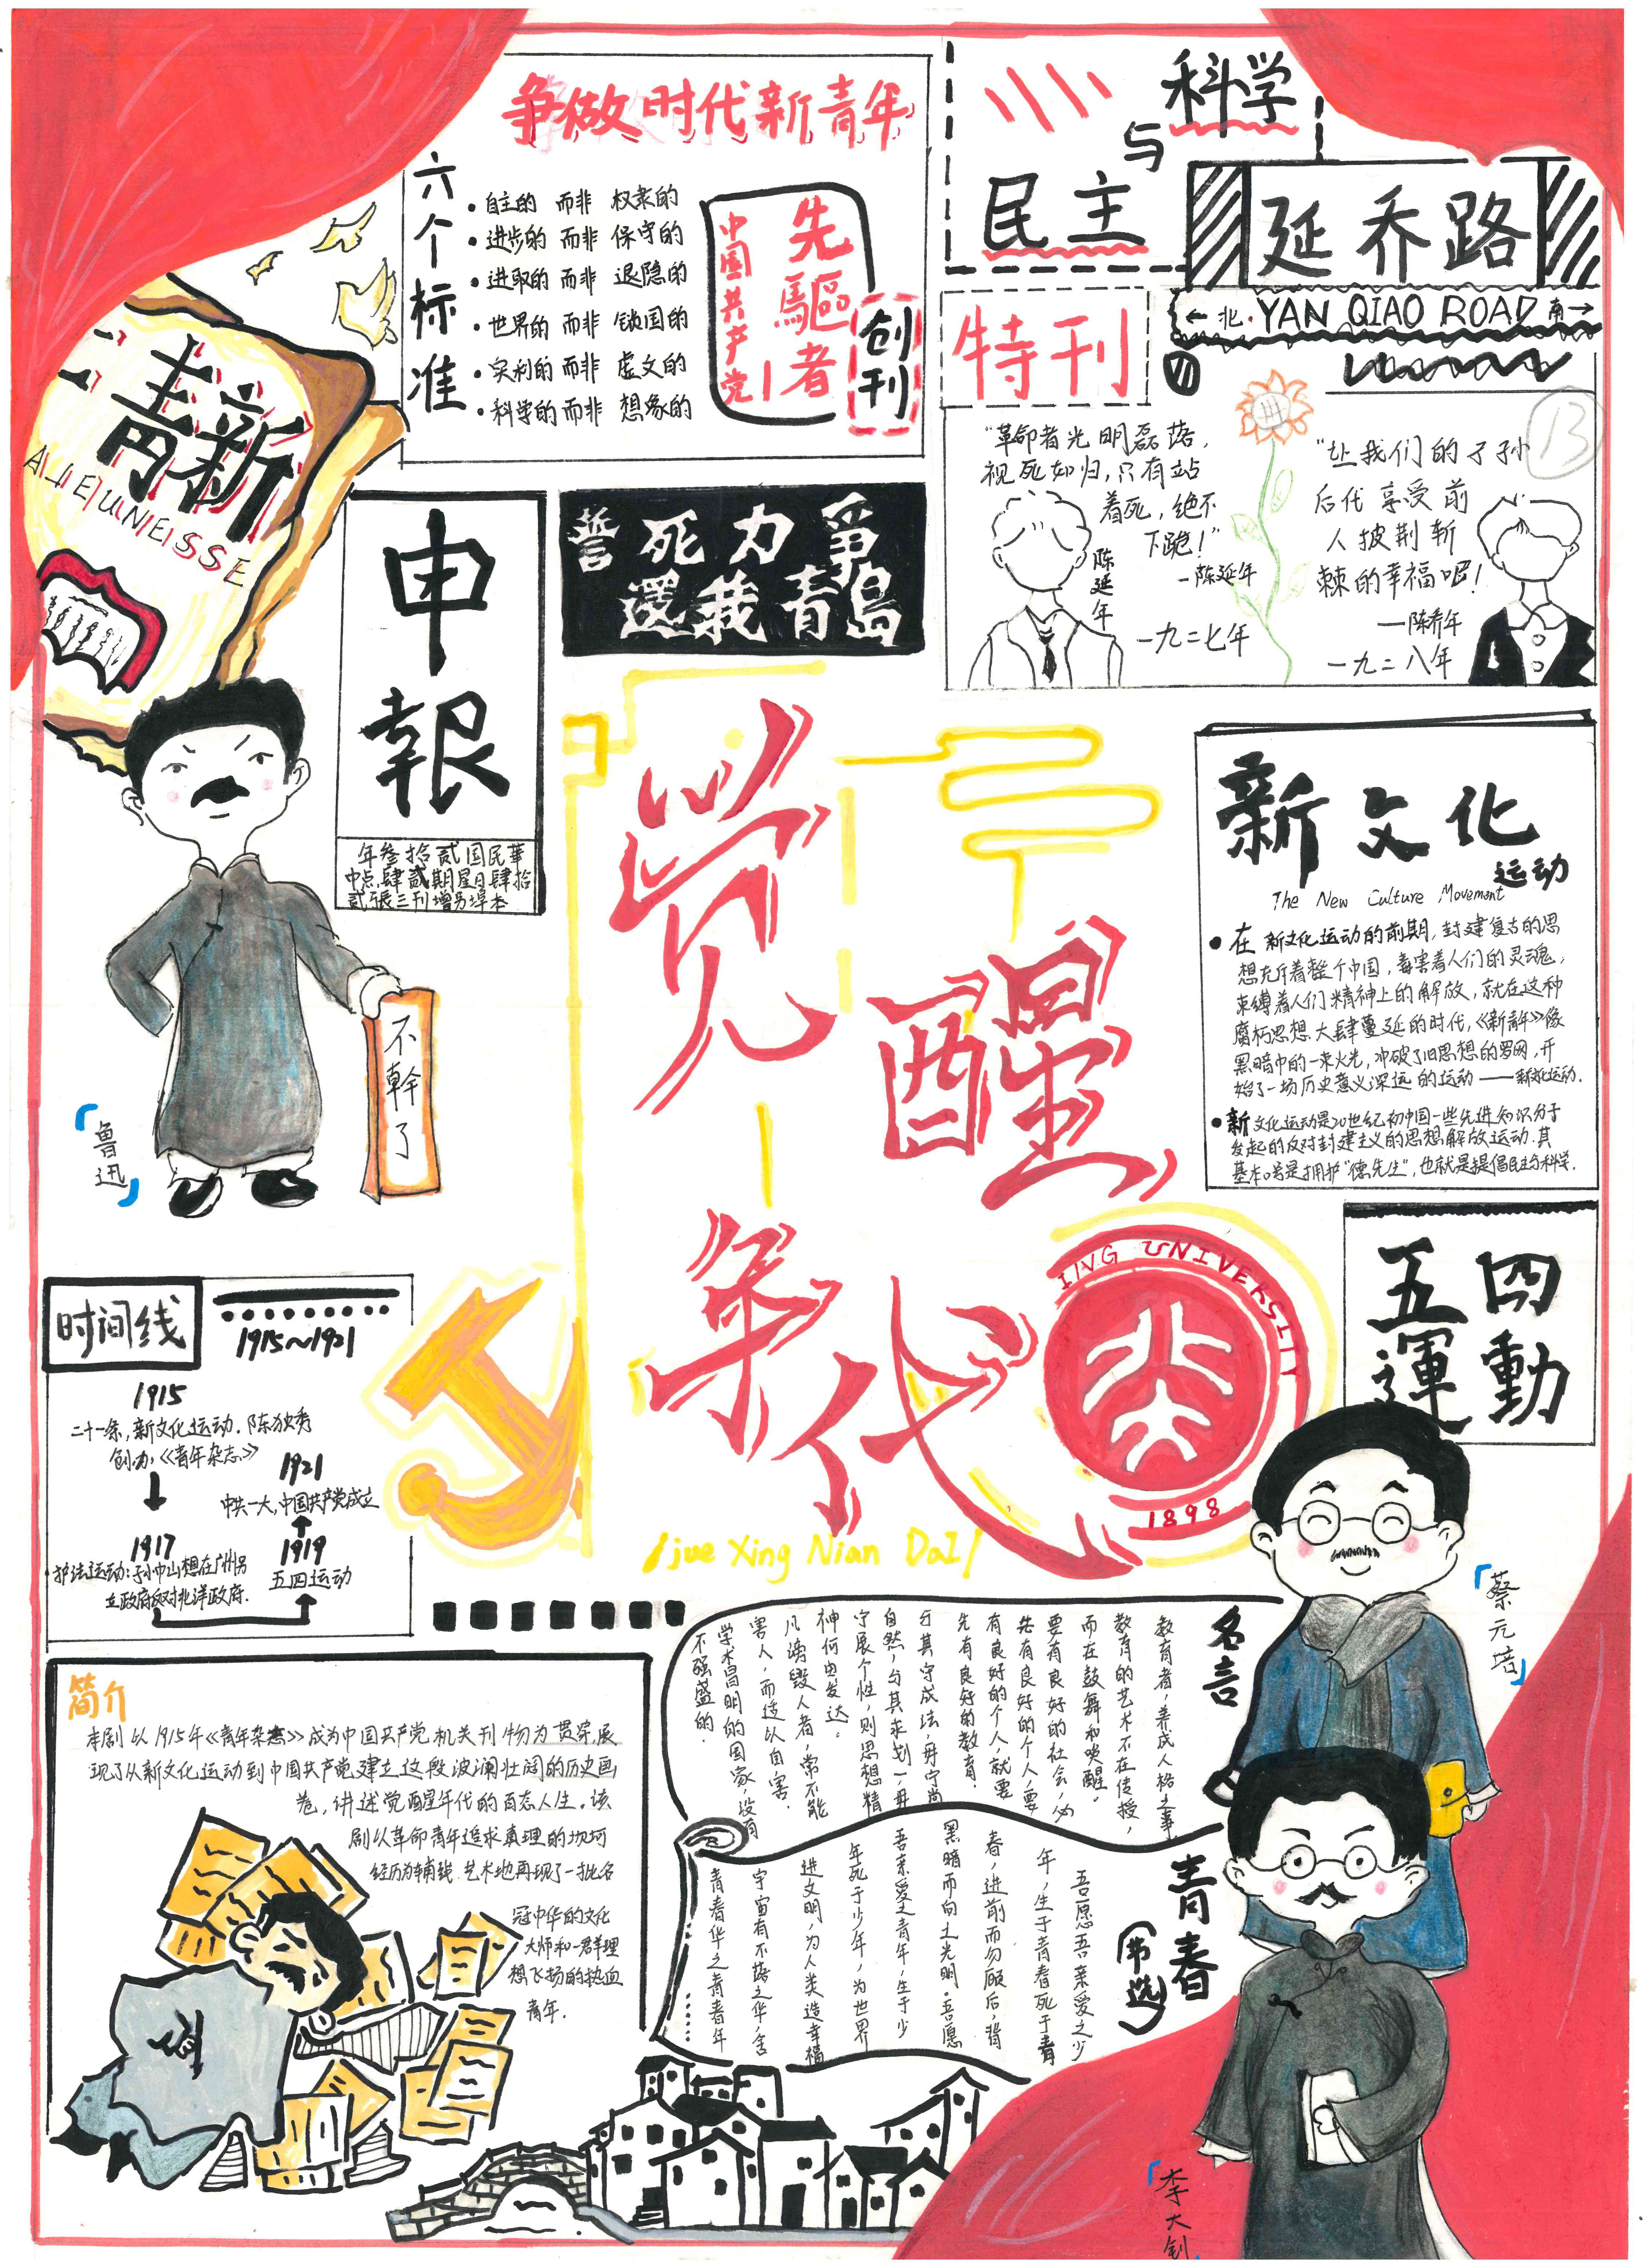 争做时代新青年
六个标准
·自主的 而非 权隶的
·进步的 而非 保守的
·进取的 而非 退隐的
·世界的 而非 锁国的
·实利的 而非 虚文的
·科学的 而非 想象的
先驅者
中国共产党
创刊
科学
与
民主
延乔路
←北·YAN QIAO ROAD 南→
特刊
"革命者光明磊落,
视死如归,只有站
着死,绝不
下跪!"
—陈延年
陈延年
一九二七年
"让我们的子孙
后代享受前
人披荆斩
棘的幸福吧!
—陈乔年
一九二八年
13
青新
JEUNESSE
申報
年叁拾贰国民華
中点肆贰期星日肆拾
贰張三刊增另埠本
誓死力爭
還我青島
觉醒
年代
/jue Xing Nian Dai/
新文化
运动
The New Culture Movement
·在新文化运动的前期,封建复古的思
想充斥着整个中国,毒害着人们的灵魂,
束缚着人们精神上的解放,就在这种
腐朽思想大肆蔓延的时代,《新青年》像
黑暗中的一束火光,冲破了旧思想的罗网,开
始了一场历史意义深远的运动——新文化运动.
·新文化运动是20世纪初中国一些先进知识分子
发起的反对封建主义的思想解放运动.其
基本口号是拥护"德先生",也就是提倡民主与科学.
不幹了
「鲁迅」
五四
運動
ING UNIVERSITY
1898
时间线
1915~1921
1915
二十一条,新文化运动.陈独秀
创办《青年杂志》
1921
中共一大,中国共产党成立
1917
护法运动:孙中山想在广州另
立政府反对北洋政府.
1919
五四运动
「蔡元培」
名言
教育者,养成人格之事
教育的艺术不在传授,
而在鼓舞和唤醒。
要有良好的社会,必
先有良好的个人,要
有良好的个人,就要
先有良好的教育.
与其守成法,毋宁尚
自然,与其求划一,毋
宁展个性,则思想精
神何由发达。
凡谤毁人者,常不能
害人,而适以自害.
学术昌明的国家,没有
不强盛的.
青春
(节选)
吾愿吾亲爱之少
年,生于青春死于青
春,进前而勿顾后,背
黑暗而向之光明.吾愿
吾亲爱之青年,生于少
年死于少年,为世界
进文明,为人类造幸福
宇宙有不落之华,含
青春华之青春年
......
简介
本剧以1915年《青年杂志》成为中国共产党机关刊物为贯穿,展
现了从新文化运动到中国共产党建立这段波澜壮阔的历史画
卷,讲述觉醒年代的百态人生。该
剧以革命青年追求真理的坎坷
经历为辅线.艺术地再现了一批名
冠中华的文化
大师和一群理
想飞扬的热血
青年.
「李大钊